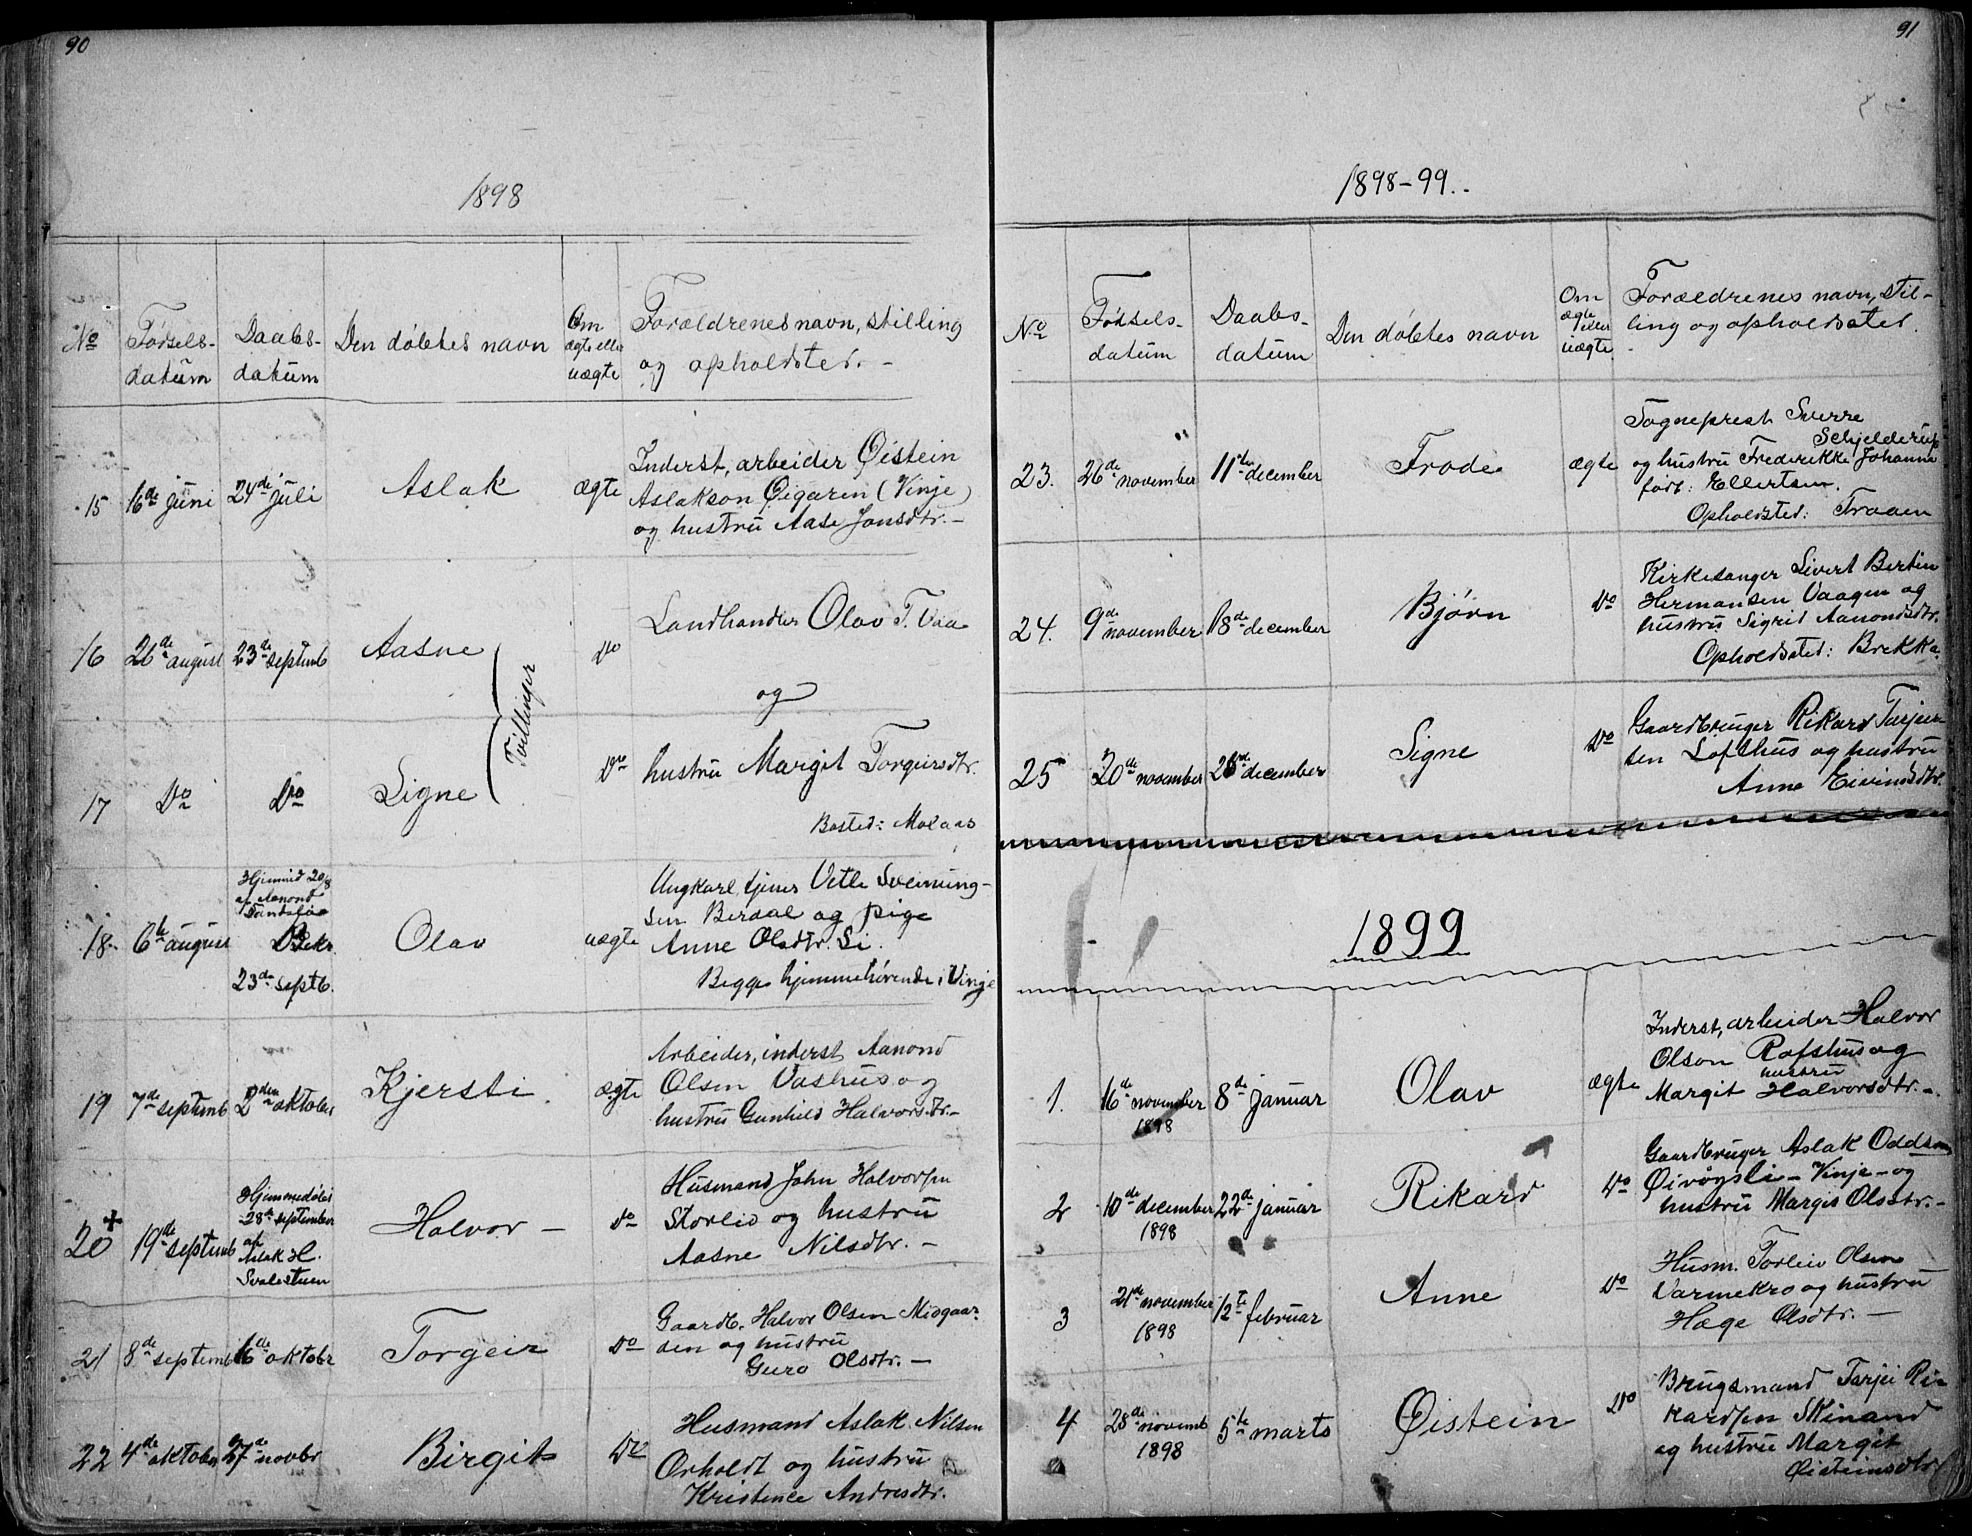 90
1898
No
Fødsels-
datum
Daabs-
datum
Den døbtes navn
Om
ægte eller
uægte
Forældrenes navn, stilling
og opholdsted. -
15
16de juni
24de juli
Aslak
ægte
Inderst, arbeider Øistein
Aslakson Øigaren (Vinje)
og hustru Aase Jonsdtr. -
16
26de august
23de septemb
Aasne
Do
Landhandler Olav T. Vaa
og
Tvillinger
17
Do
Do
Signe
Do
hustru Margit Torgeirsdtr.
Bosted: Molaas
18.
6te august
Hjemmed 20/8
af Aanond
Bekr.
23de septb.
Olav
uægte
Ungkarl, tjener Vetle Sveinung-
sen Berdal og pige
Anne Olsdtr. Li.
Begge hjemmehørende i Vinje
19
7de septemb
2den oktober
Kjersti
ægte
Arbeider, inderst Aanond
Olsen Vashus og
hustru Gunhild Halvorsdtr. -
20
19de septemb
Hjemmedøbt
28de september
af
Aslak H.
Svalestuen
Halvor -
Do
Husmand John Halvorsen
Skorlid og hustru
Aasne Nilsdtr. -
21
8de septemb
16de oktobr
Torgeir
Do
Gaardb. Halvor Olsen Midgaar-
den og hustru
Guro Olsdtr. -
22
4de oktober
27de novbr
Birgit
Do
Husmand Aslak Nilsen
Orholdt og hustru
Kristence Andresdtr.
91
1898-99.
No
Fødsels-
datum
Daabs-
datum
Den døbtes navn
Om
ægte
eller
uægte
Forældrenes navn, stil-
ling og opholdsted.
23.
26de november
11te december
Frode
ægte
Sogneprest Sverre
Schjelderup
og hustru Frederikke Johanne
født: Ellertsen.
Opholdsted: Traaen
24.
9de november
18de december
Bjørn
Do
Kirkesanger Sivert Bertin
Hermansen Vaagen og
hustru Sigrid Aanondsdtr.
Opholdsted: Brekka.
25
20de november
26de december
Signe
Do
Gaardbruger Rikard Tarjei-
sen Lofthus og hustru
Anne Eivindsdtr.
1899
1.
16de november
1898
8de januar
Olav
ægte
Inderst, arbeider Halvor
Olson Rofshus og
hustru
Margit Halvorsdtr. -
2
10de december
1898
22de januar
Rikard
Do
Gaardbruger Aslak Oddson
Øivøgsli - Vinje - og
hustru Margit Olsdtr. -
3
21de november
1898
12te februar
Anne
Do
Husm. Torleiv Olsen
Varmekro og hustru
Hæge Olsdtr. -
4
28de novemb
1898
5te marts
Øistein
Do
Brugsmand Tarjei Ri-
kardsen Skinand
og hustru Margit
Øisteinsdtr.